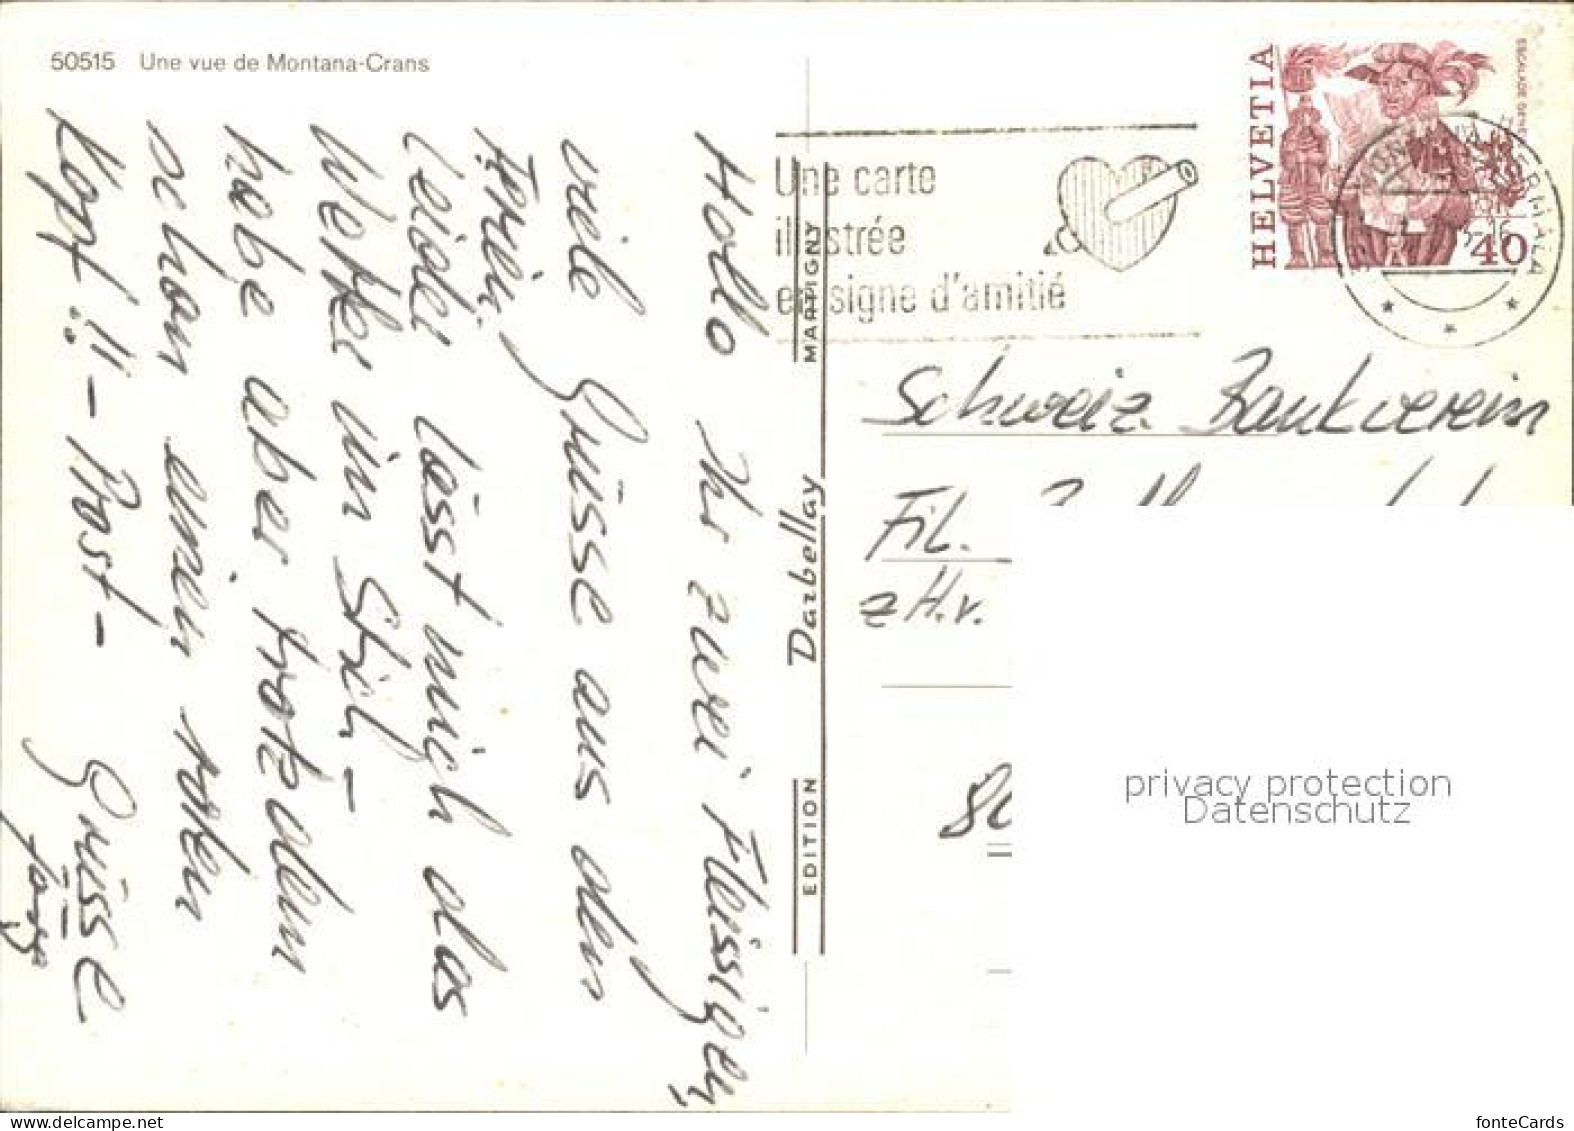 50515 Une vue de Montana-Crans
Hallo Ihr zwei Fleissigen,
viele Grüsse aus den
Ferien.
Leider lässt mich das
Wetter im Stich –
habe aber trotzdem
schon einen roten
Kopf!! – Prost –
Grüsse
EDITION Darbellay MARTIGNY
Une carte
illustrée
en signe d'amitié
HELVETIA
ESCALADE GENÈVE
40
Schweiz. Bankverein
Fil.
z.H.v.
privacy protection
Datenschutz
fonteCards